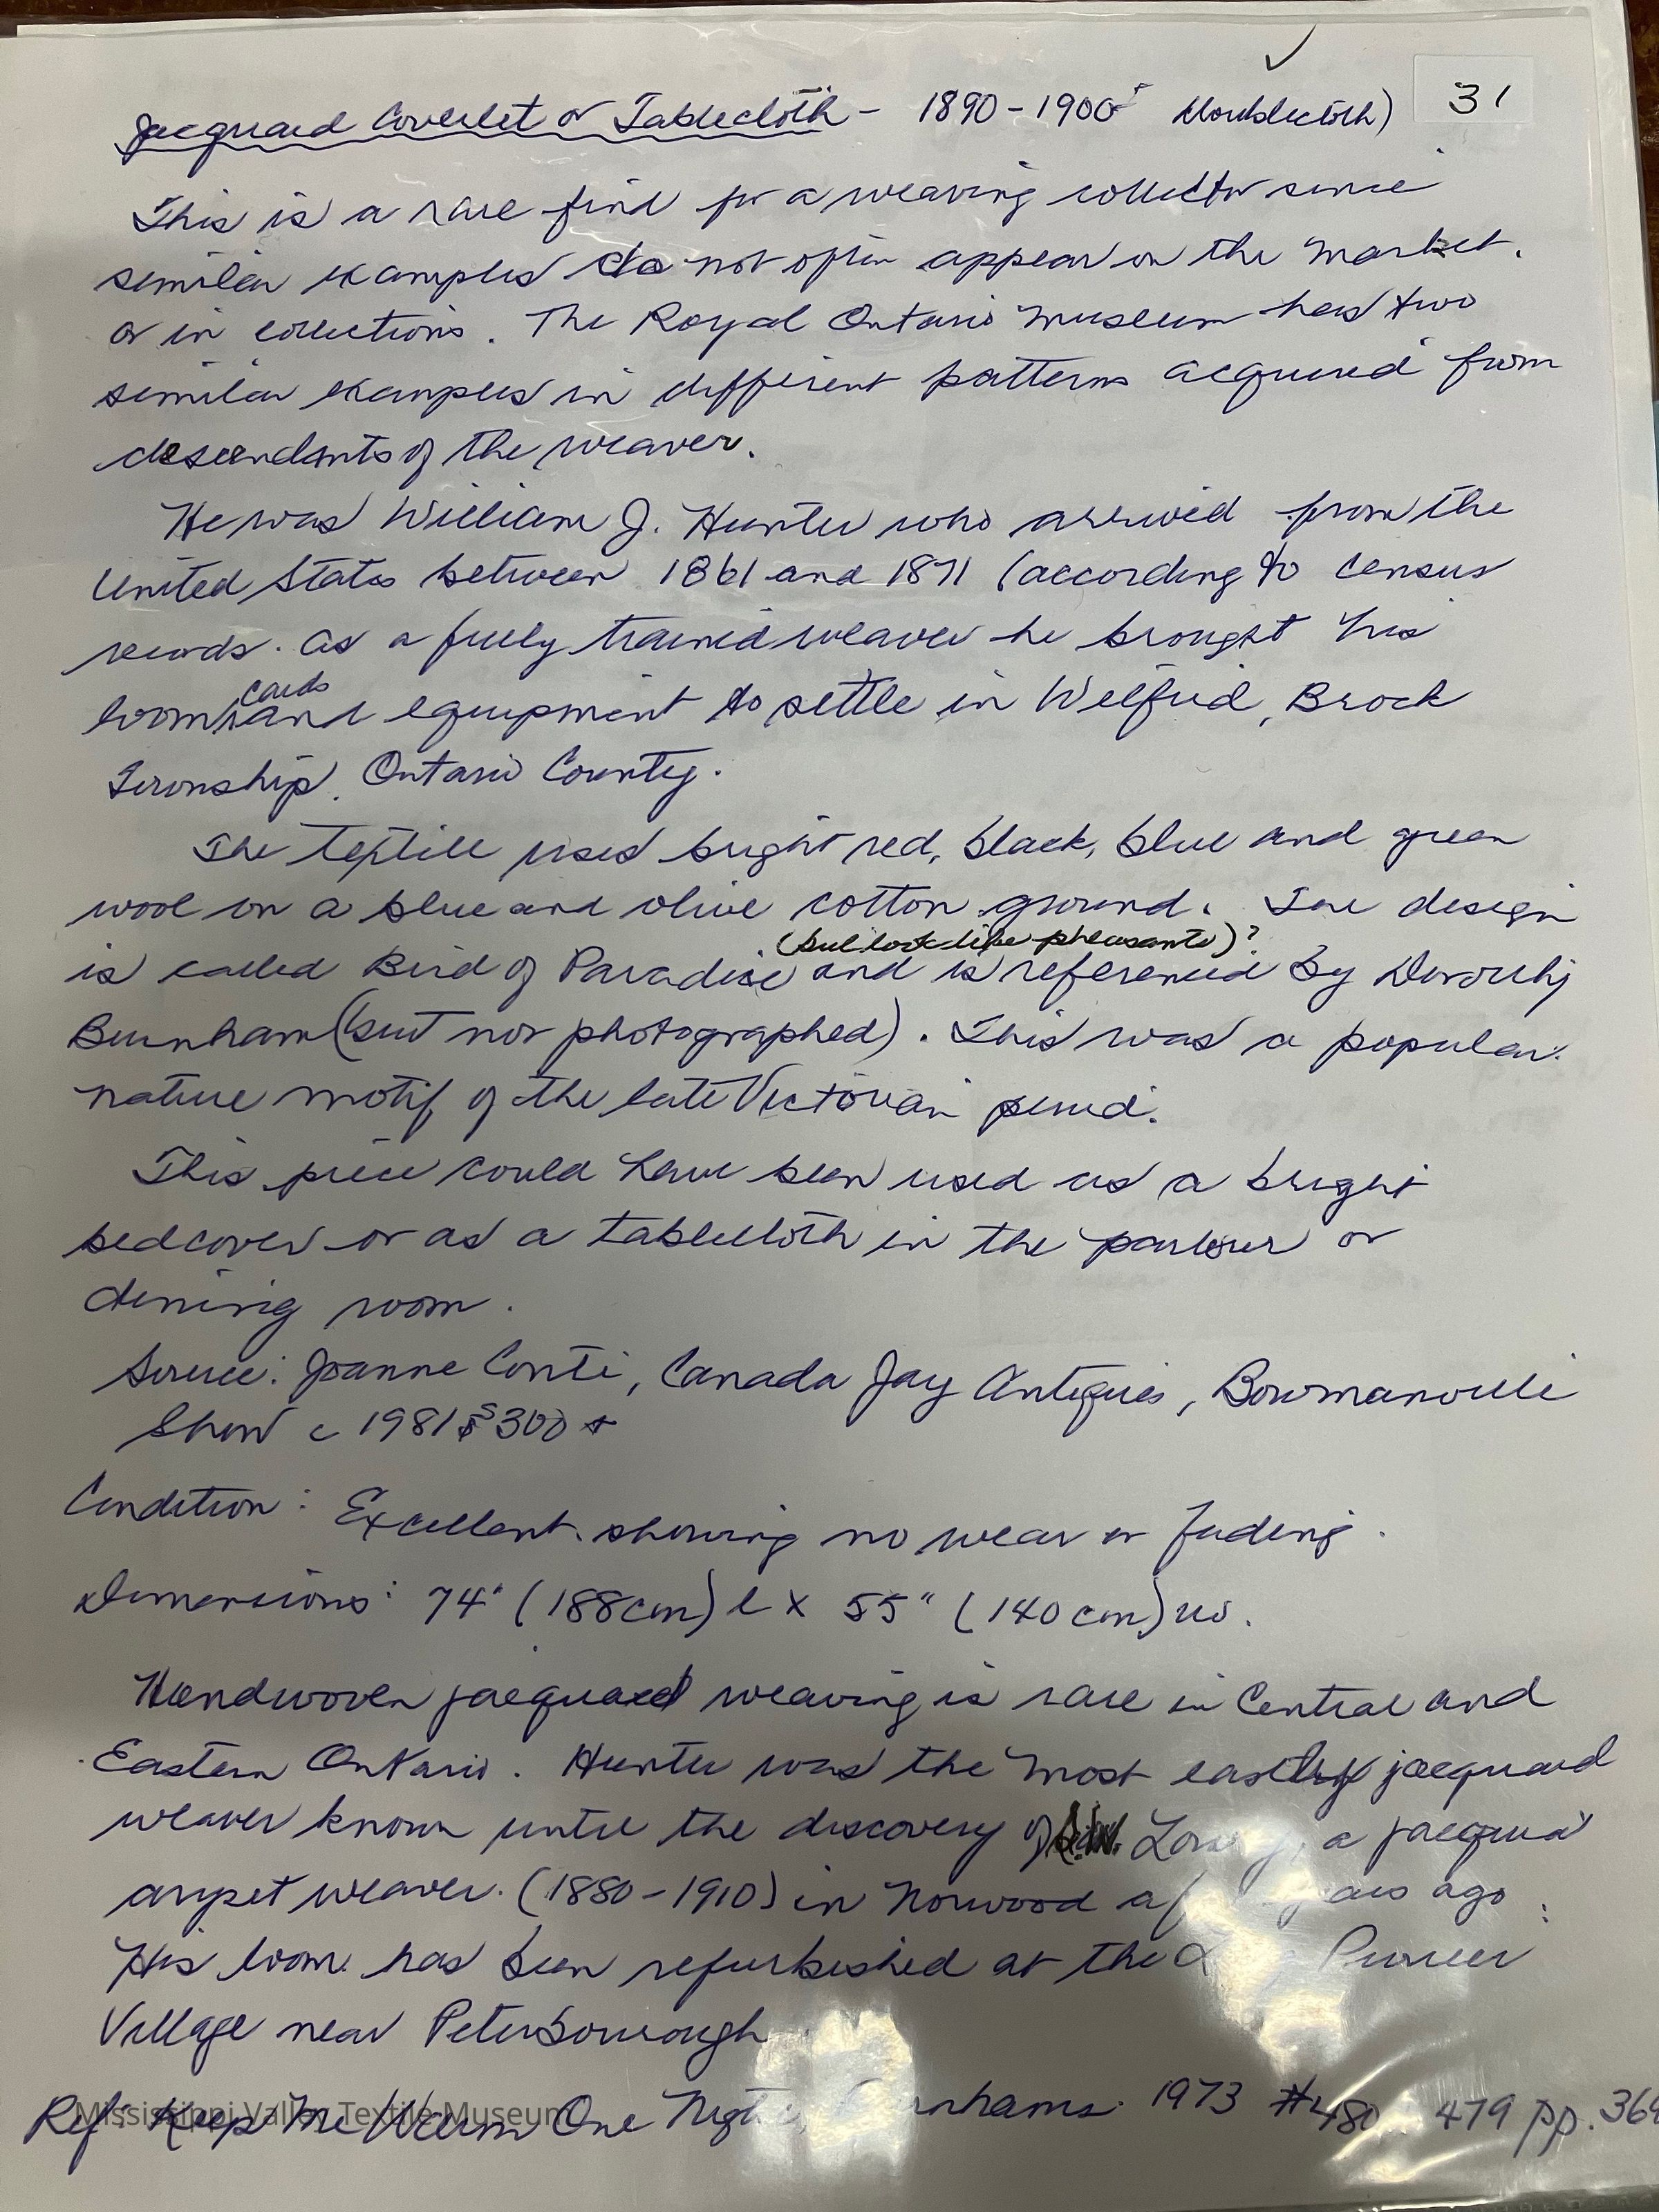 31
Jacquard Coverlet or Tablecloth - 1890-1900± (doublecloth)
This is a rare find for a weaving collector since
similar examples do not often appear on the market.
or in collections. The Royal Ontario Museum has two
similar examples in different patterns acquired from
descendants of the weaver.
He was William J. Hunter who arrived from the
United States between 1861 and 1871 (according to census
records. As a fully trained weaver he brought his
loom, cards and equipment to settle in Welfrid, Brock
Township, Ontario County.
The textile uses bright red, black, blue and green
wool on a blue and olive cotton ground. The design
(but look like pheasants)?
is called Bird of Paradise and is referenced by Dorothy
Burnham (but not photographed). This was a popular
nature motif of the late Victorian period.
This piece could have been used as a bright
bedcover or as a tablecloth in the parlour or
dining room.
Source: Joanne Conti, Canada Jay Antiques, Bowmanville
Show c 1981 $300
Condition: Excellent. showing no wear or fading.
Dimensions: 74" (188cm) l x 55" (140cm) w.
Handwoven jacquard weaving is rare in Central and
Eastern Ontario. Hunter was the most easterly jacquard
weaver known until the discovery of a jacquard
carpet weaver. (1880-1910) in Norwood ago
His loom has been refurbished at the Pioneer
Village near Peterborough
Ref: Keep Me Warm One Night, 1973 #480 479 pp. 364
Mississippi Valley Textile Museum